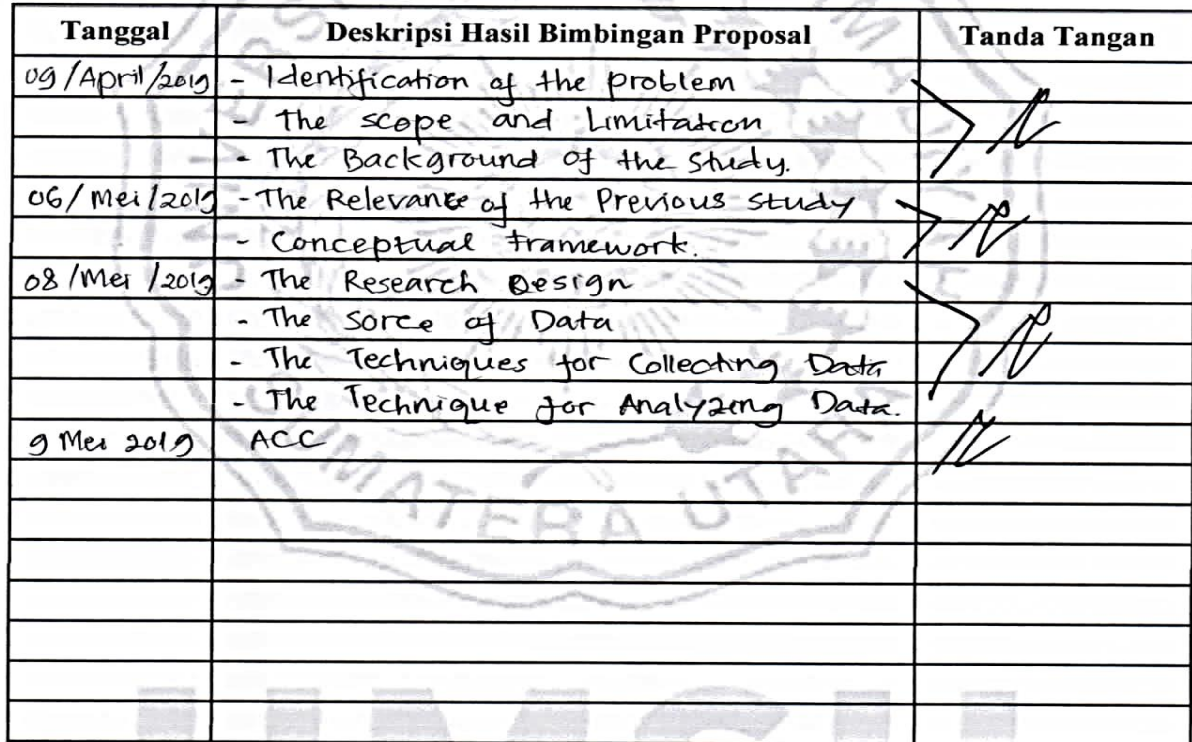 Tanggal Deskripsi Hasil Bimbingan Proposal Tanda Tangan
09/April/2019 - Identification of the problem
- The scope and Limitation
- The Background of the Study.
06/Mei/2019 - The Relevance of the Previous study
- Conceptual framework.
08/Mei/2019 - The Research Design
- The Sorce of Data
- The Techniques for Collecting Data
- The Technique for Analyzing Data.
9 Mei 2019 ACC
SUMATERA UTARA
UMSU